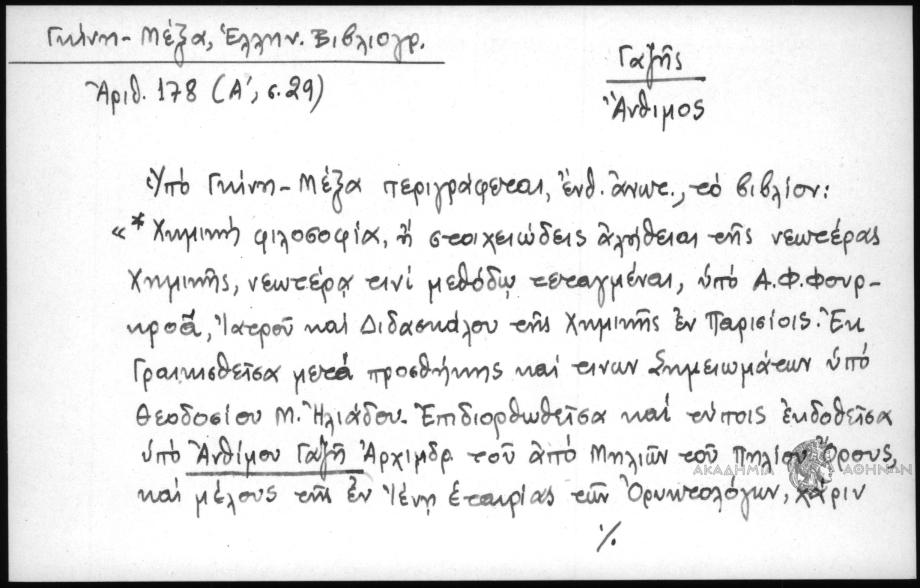 Γκίνη - Μέξα, Ἑλλην. Βιβλιογρ.
Ἀριθ. 178 (Α', σ. 29)
Γαζῆς
Ἄνθιμος
Ὑπό Γκίνη - Μέξα περιγράφεται, ἔνθ. ἀνωτ., τό βιβλίον:
«*Χημική φιλοσοφία, ἤ στοιχειώδεις ἀλήθειαι τῆς νεωτέρας
Χημικῆς, νεωτέρᾳ τινί μεθόδῳ τεταγμέναι, ὑπό Α.Φ.Φουρ-
κροᾶ, Ἰατροῦ καί Διδασκάλου τῆς Χημικῆς ἐν Παρισίοις. Ἐκ
Γραικισθεῖσα μετά προσθήκης καί τινων Σημειωμάτων ὑπό
Θεοδοσίου Μ. Ἠλιάδου. Ἐπιδιορθωθεῖσα καί τύποις ἐκδοθεῖσα
ὑπό Ἀνθίμου Γαζῆ Ἀρχιμδρ τοῦ ἀπό Μηλιῶν τοῦ Πηλίου Ὄρους,
ΑΚΑΔΗΜΙΑ ΑΘΗΝΩΝ
καί μέλους τῆς ἐν Ἰένῃ ἑταιρίας τῶν Ὀρυκτολόγων, χάριν
./.